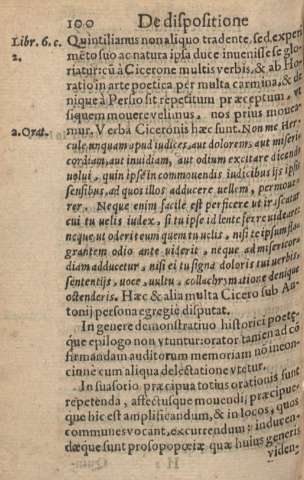 100 De dispositione
Libr. 6. c. Quintilianus non aliquo tradente, sed experi-
2. mẽto suo ac natura ipsa duce inuenisse se glo
riatur: cũ à Cicerone multis verbis, & ab Ho-
ratio in arte poetica per multa carmina, & de
nique à Persio sit repetitum præceptum, vt
si quem mouere velimus, nos prius mouea-
2. Orat. mur. Verba Ciceronis hæc sunt. Non me Her-
cule vnquam apud iudices, aut dolorem, aut miseri
cordiam, aut inuidiam, aut odium excitare dicendo
uolui, quin ipse in commouendis iudicibus ijs ipsis
sensibus, ad quos illos adducere uellem, permoue
rer. Neque enim facile est perficere ut irascatur
cui tu velis iudex, si tu ipse id lente ferre uideare,
neque ut oderit eum quem tu uelis, nisi te ipsum fla
grantem odio ante uiderit, neque ad misericor
diam adducetur, nisi ei tu signa doloris tui verbis,
sententijs, uoce, uultu, collachrymatione denique
ostenderis. Hæc & alia multa Cicero sub An-
tonij persona egregie disputat.
In genere demonstratiuo historici poetę-
que epilogo non vtuntur: orator tamen ad cõ
firmandam auditorum memoriam nõ incon-
cinnè cum aliqua delectatione vtetur.
In suasorio præcipua totius orationis sunt
repetenda, affectusque mouendi; præcipue-
que hic est amplificandum, & in locos, quos
communes vocant, excurrendum: inducen-
dæque sunt prosopopœiæ quæ huius generis
viden-